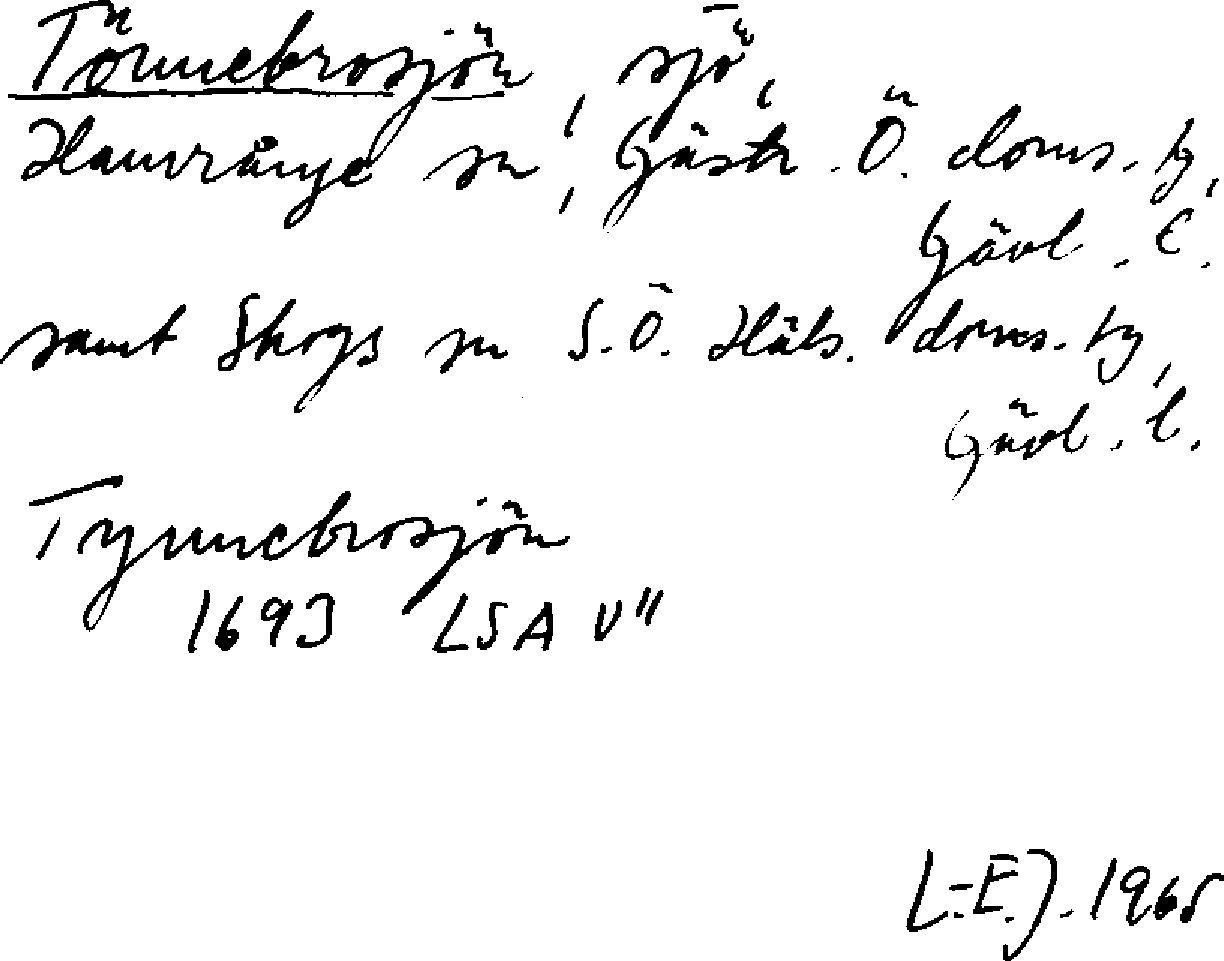 Tönnebrosjön, sjö,
Hamrånge sn, Gästr. Ö. doms. tg,
Gävl. l.
samt Skogs sn S.Ö. Häls. doms. tg,
Gävl. l.
Tynnebrosjön
1693 LSA V"
L.-E. J. 1965